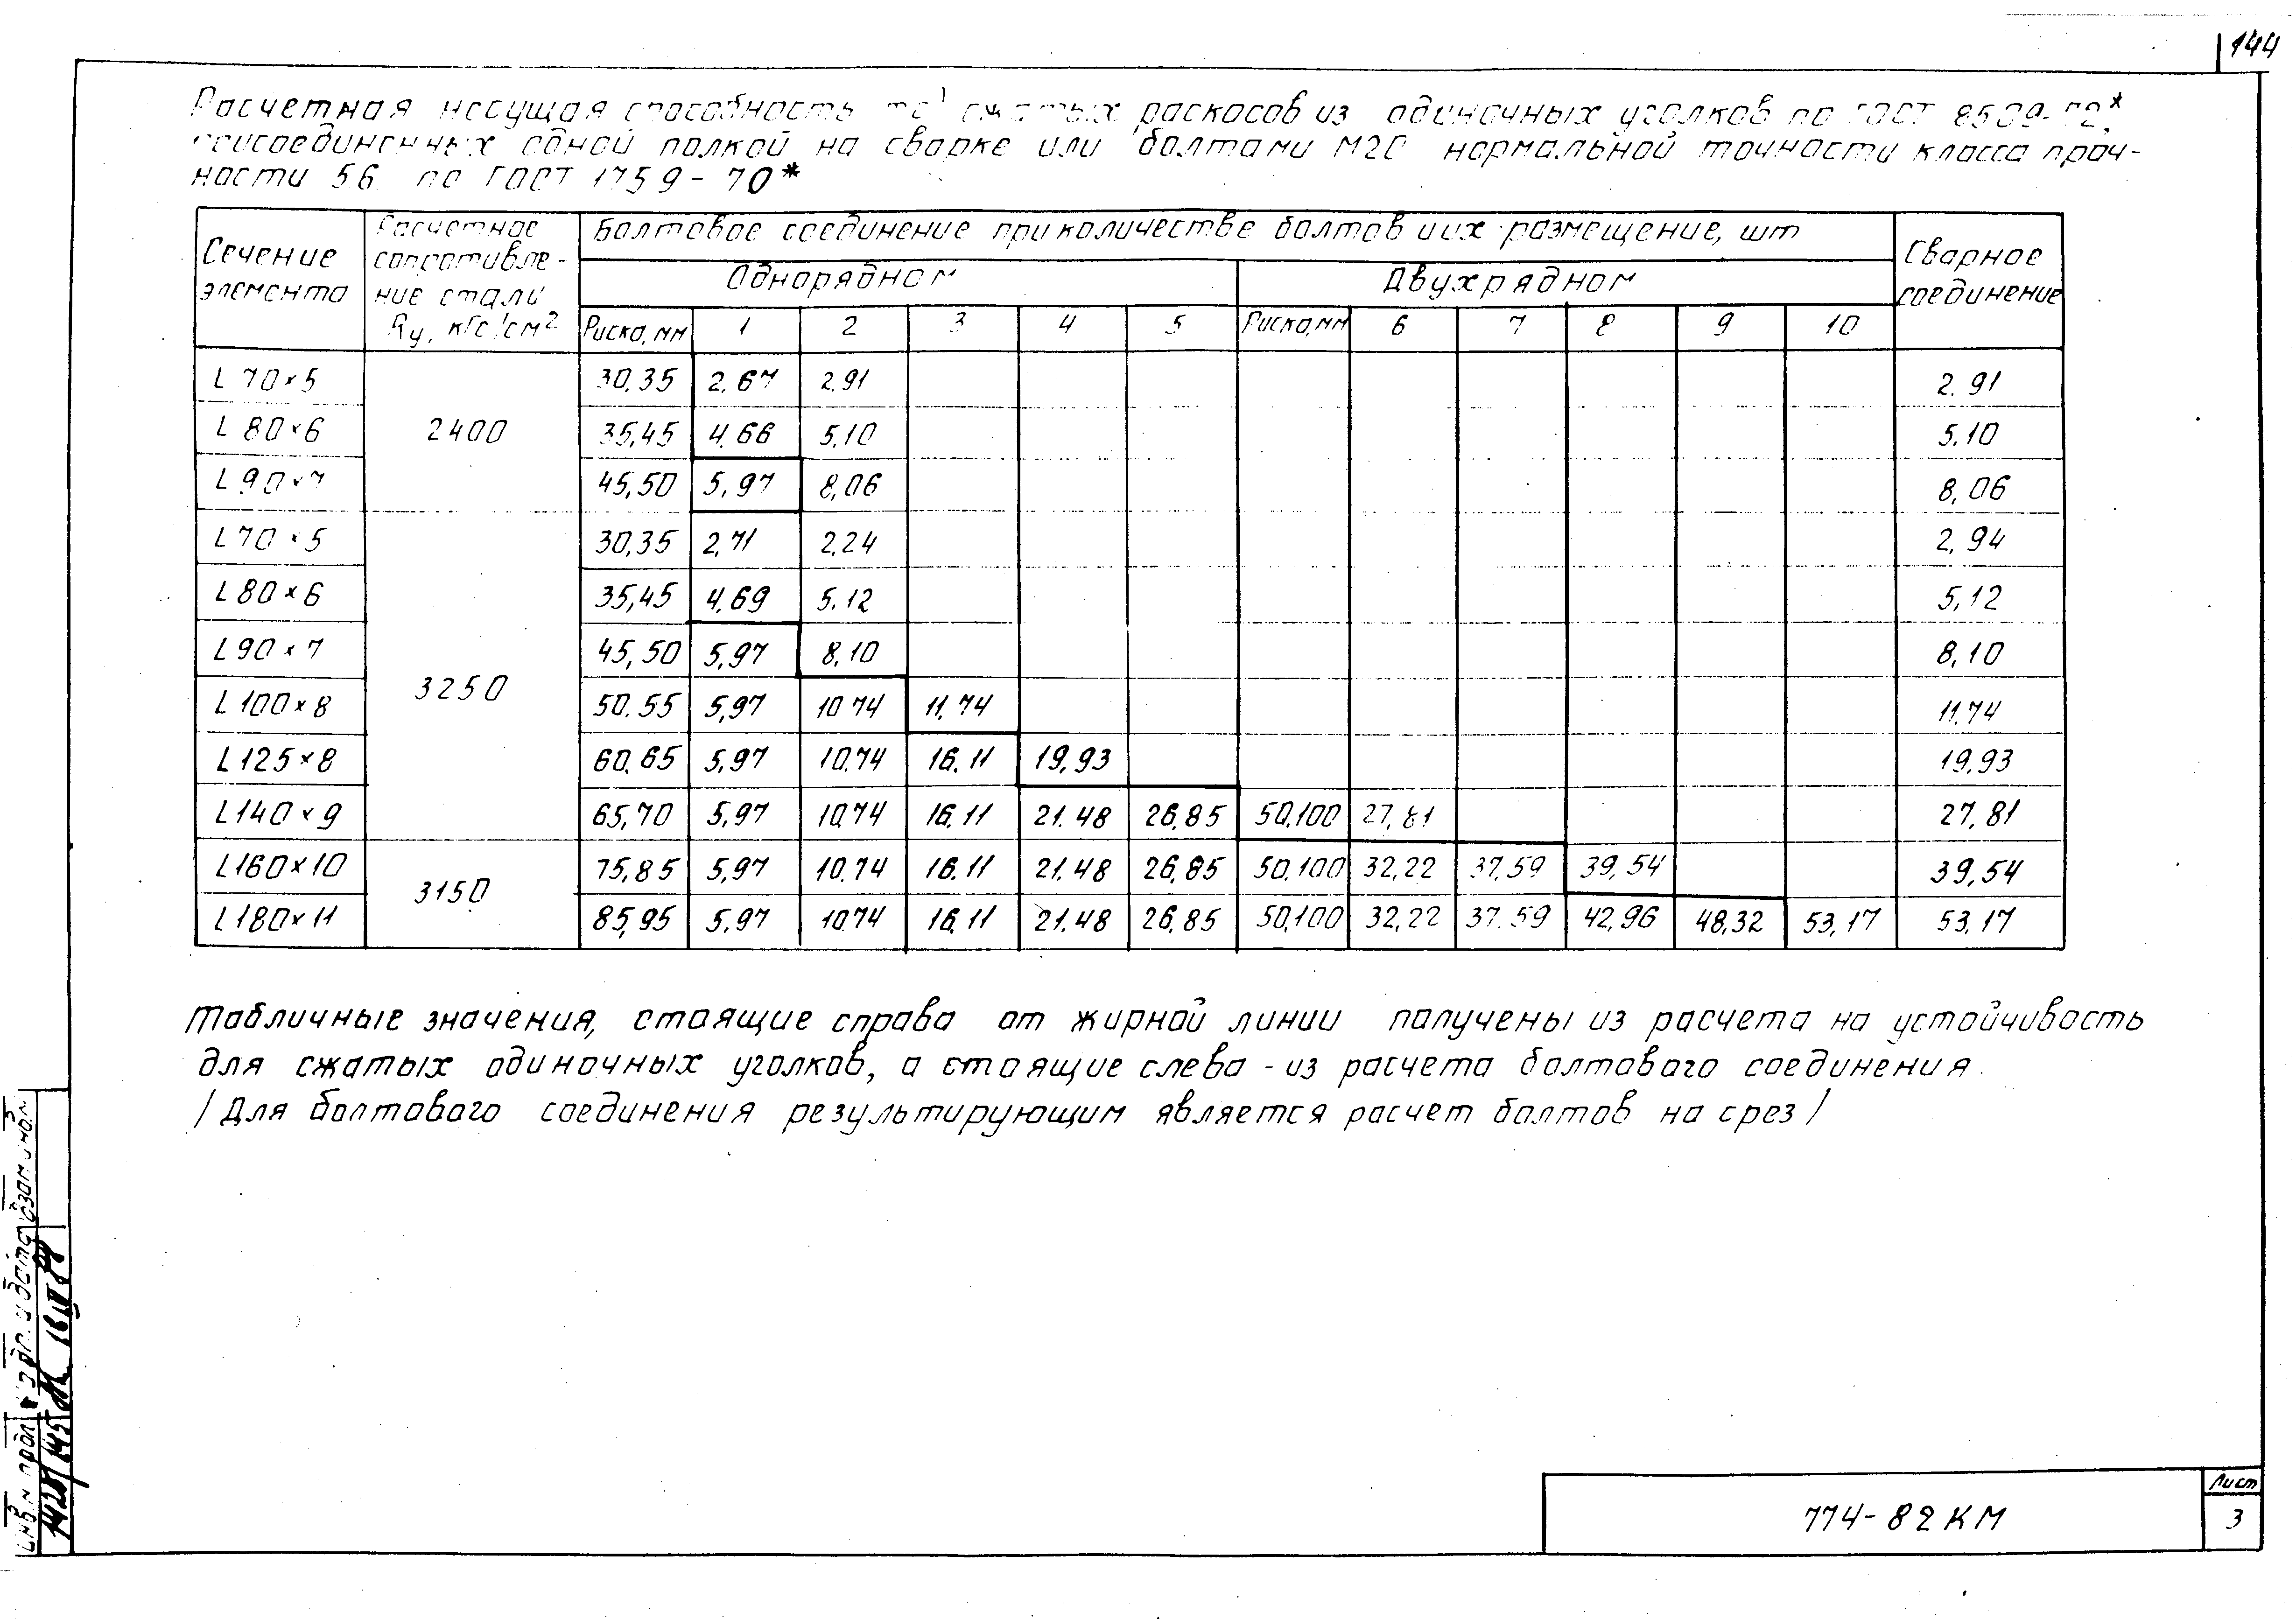 144
Расчетная несущая способность тс) сжатых раскосов из одиночных уголков по ГОСТ 8509-72*,
присоединенных одной полкой на сварке или болтами М20 нормальной точности класса проч-
ности 5.6 по ГОСТ 1759-70*
Сечение элемента | Расчетное сопротивле-ние стали Rу, кГс/см² | Болтовое соединение при количестве болтов и их размещение, шт | Сварное соединение
Однорядном | Двухрядном
Риска, мм | 1 | 2 | 3 | 4 | 5 | Риска, мм | 6 | 7 | 8 | 9 | 10
L 70×5 | 2400 | 30,35 | 2,67 | 2.91 | 2.91
L 80×6 | 35,45 | 4,66 | 5,10 | 5,10
L 90×7 | 45,50 | 5,97 | 8,06 | 8,06
L 70×5 | 3250 | 30,35 | 2,71 | 2,24 | 2,94
L 80×6 | 35,45 | 4,69 | 5.12 | 5,12
L 90×7 | 45,50 | 5,97 | 8,10 | 8,10
L 100×8 | 50.55 | 5,97 | 10.74 | 11.74 | 11.74
L 125×8 | 60.65 | 5,97 | 10.74 | 16.11 | 19,93 | 19,93
L 140×9 | 65,70 | 5,97 | 10.74 | 16.11 | 21.48 | 26,85 | 50,100 | 27,81 | 27,81
L 160×10 | 3150 | 75,85 | 5,97 | 10.74 | 16.11 | 21.48 | 26,85 | 50,100 | 32,22 | 37,59 | 39,54 | 39,54
L 180×11 | 85,95 | 5,97 | 10.74 | 16.11 | 21.48 | 26,85 | 50,100 | 32,22 | 37.59 | 42,96 | 48,32 | 53,17 | 53,17
Табличные значения, стоящие справа от жирной линии получены из расчета на устойчивость
для сжатых одиночных уголков, а стоящие слева - из расчета болтового соединения.
/ Для болтового соединения результирующим является расчет болтов на срез /
774-82КМ
Лист
3